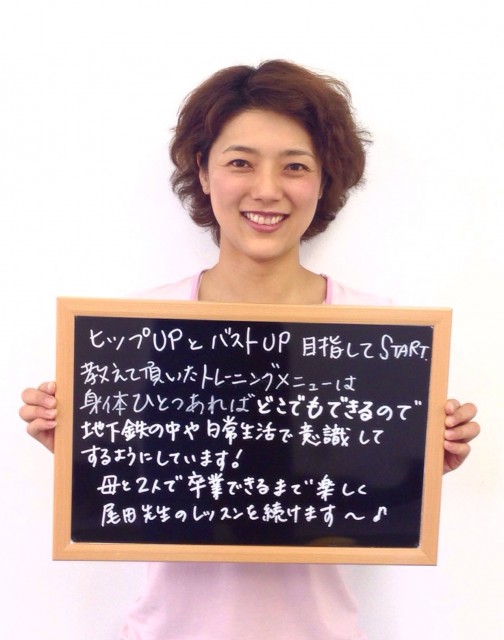 ヒップUPとバストUP 目指してSTART.
教えて頂いたトレーニングメニューは
身体ひとつあればどこでもできるので
地下鉄の中や日常生活で意識して
するようにしています!
母と2人で卒業できるまで楽しく
尾田先生のレッスンを続けます〜♪